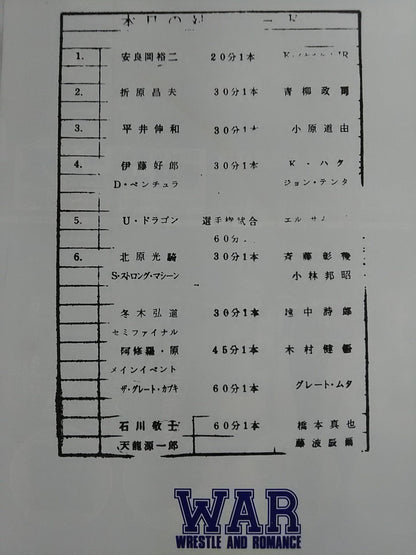 本日の
1. 安良岡裕二 20分1本
2. 折原昌夫 30分1本 青柳政司
3. 平井伸和 30分1本 小原道由
4. 伊藤好郎 30分1本 K・ハク
D・ベンチュラ ジョン・テンタ
5. U・ドラゴン 選手権試合 エル サム
60分
6. 北原光騎 30分1本 斉藤彰俊
S・ストロング・マシーン 小林邦昭
冬木弘道 30分1本 越中詩郎
セミファイナル
阿修羅・原 45分1本 木村健悟
メインイベント
ザ・グレート・カブキ 60分1本 グレート・ムタ
石川敬士 60分1本 橋本真也
天龍源一郎 藤波辰爾
WAR
WRESTLE AND ROMANCE